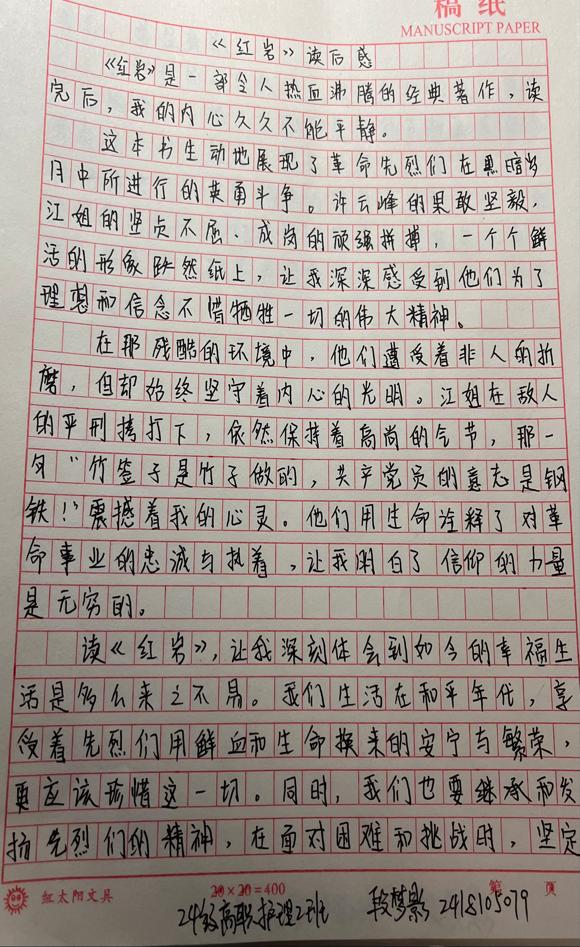 稿纸
MANUSCRIPT PAPER
《红岩》读后感
《红岩》是一部令人热血沸腾的经典著作，读
完后，我的内心久久不能平静。
这本书生动地展现了革命先烈们在黑暗岁
月中所进行的英勇斗争。许云峰的果敢坚毅，
江姐的坚贞不屈、成岗的顽强拼搏，一个个鲜
活的形象跃然纸上，让我深深感受到他们为了
理想和信念不惜牺牲一切的伟大精神。
在那残酷的环境中，他们遭受着非人的折
磨，但却始终坚守着内心的光明。江姐在敌人
的严刑拷打下，依然保持着高尚的气节，那一
句“竹签子是竹子做的，共产党员的意志是钢
铁！”震撼着我的心灵。他们用生命诠释了对革
命事业的忠诚与执着，让我明白了信仰的力量
是无穷的。
读《红岩》，让我深刻体会到如今的幸福生
活是多么来之不易。我们生活在和平年代，享
受着先烈们用鲜血和生命换来的安宁与繁荣，
更应该珍惜这一切。同时，我们也要继承和发
扬先烈们的精神，在面对困难和挑战时，坚定
红太阳文具
20×20=400
第 页
24级高职护理2班 段梦影 2418105079